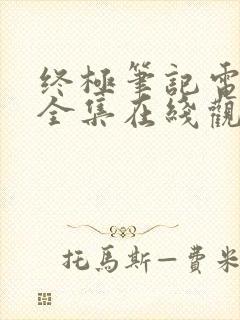 終極筆記電
全集在綫觀
托馬斯—費米